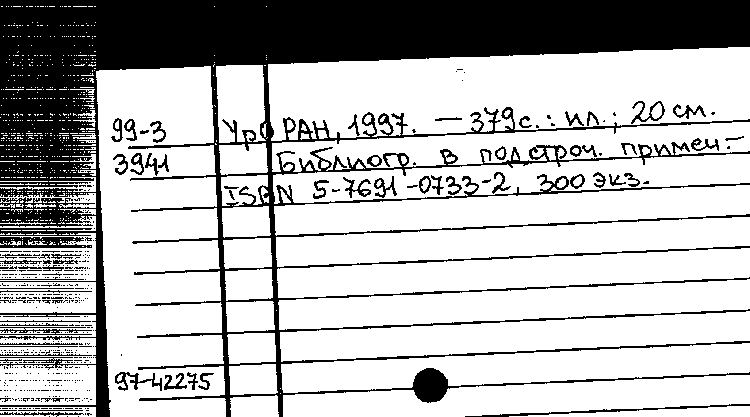 99-3 УрО РАН, 1997. — 379с. : ил. ; 20 см.
3941 Библиогр. в подстроч. примеч. -
ISBN 5-7691-0733-2, 300 экз.
97-42275